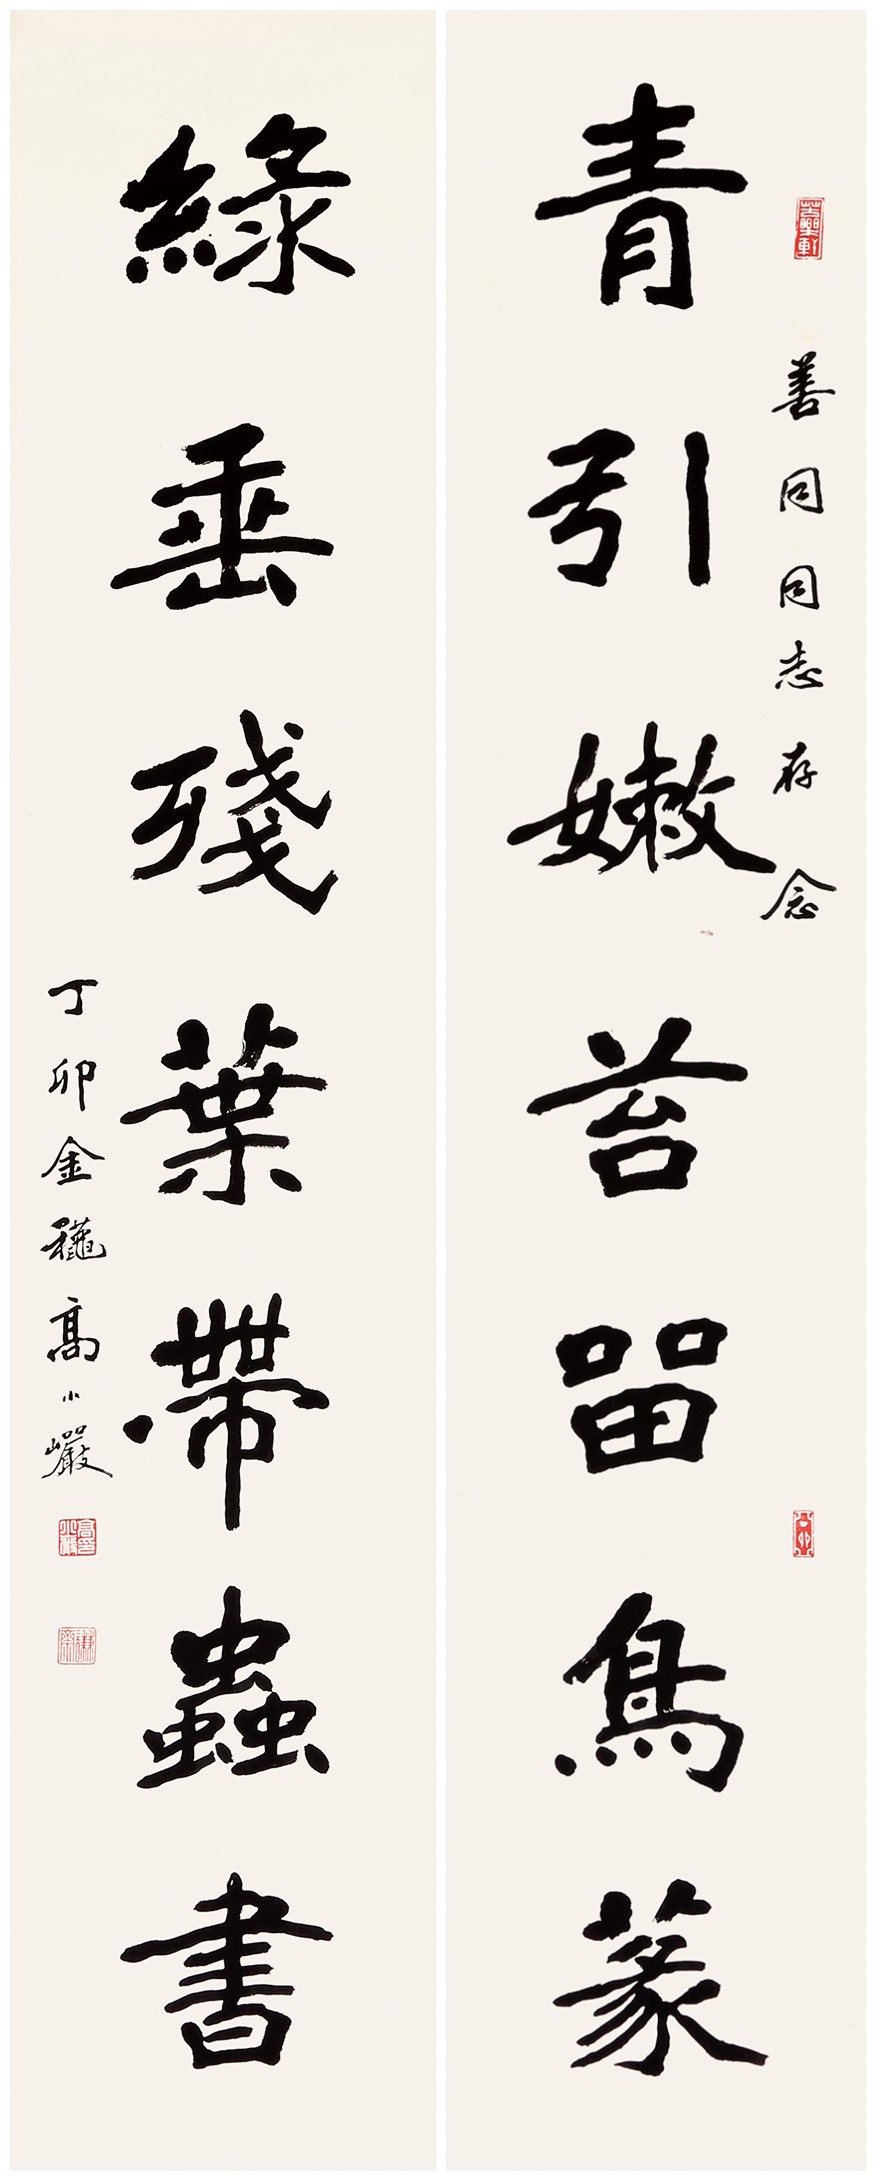 善同同志存念
青引嫩苔留鳥篆
綠垂殘葉帶蟲書
丁卯金穐高小巖